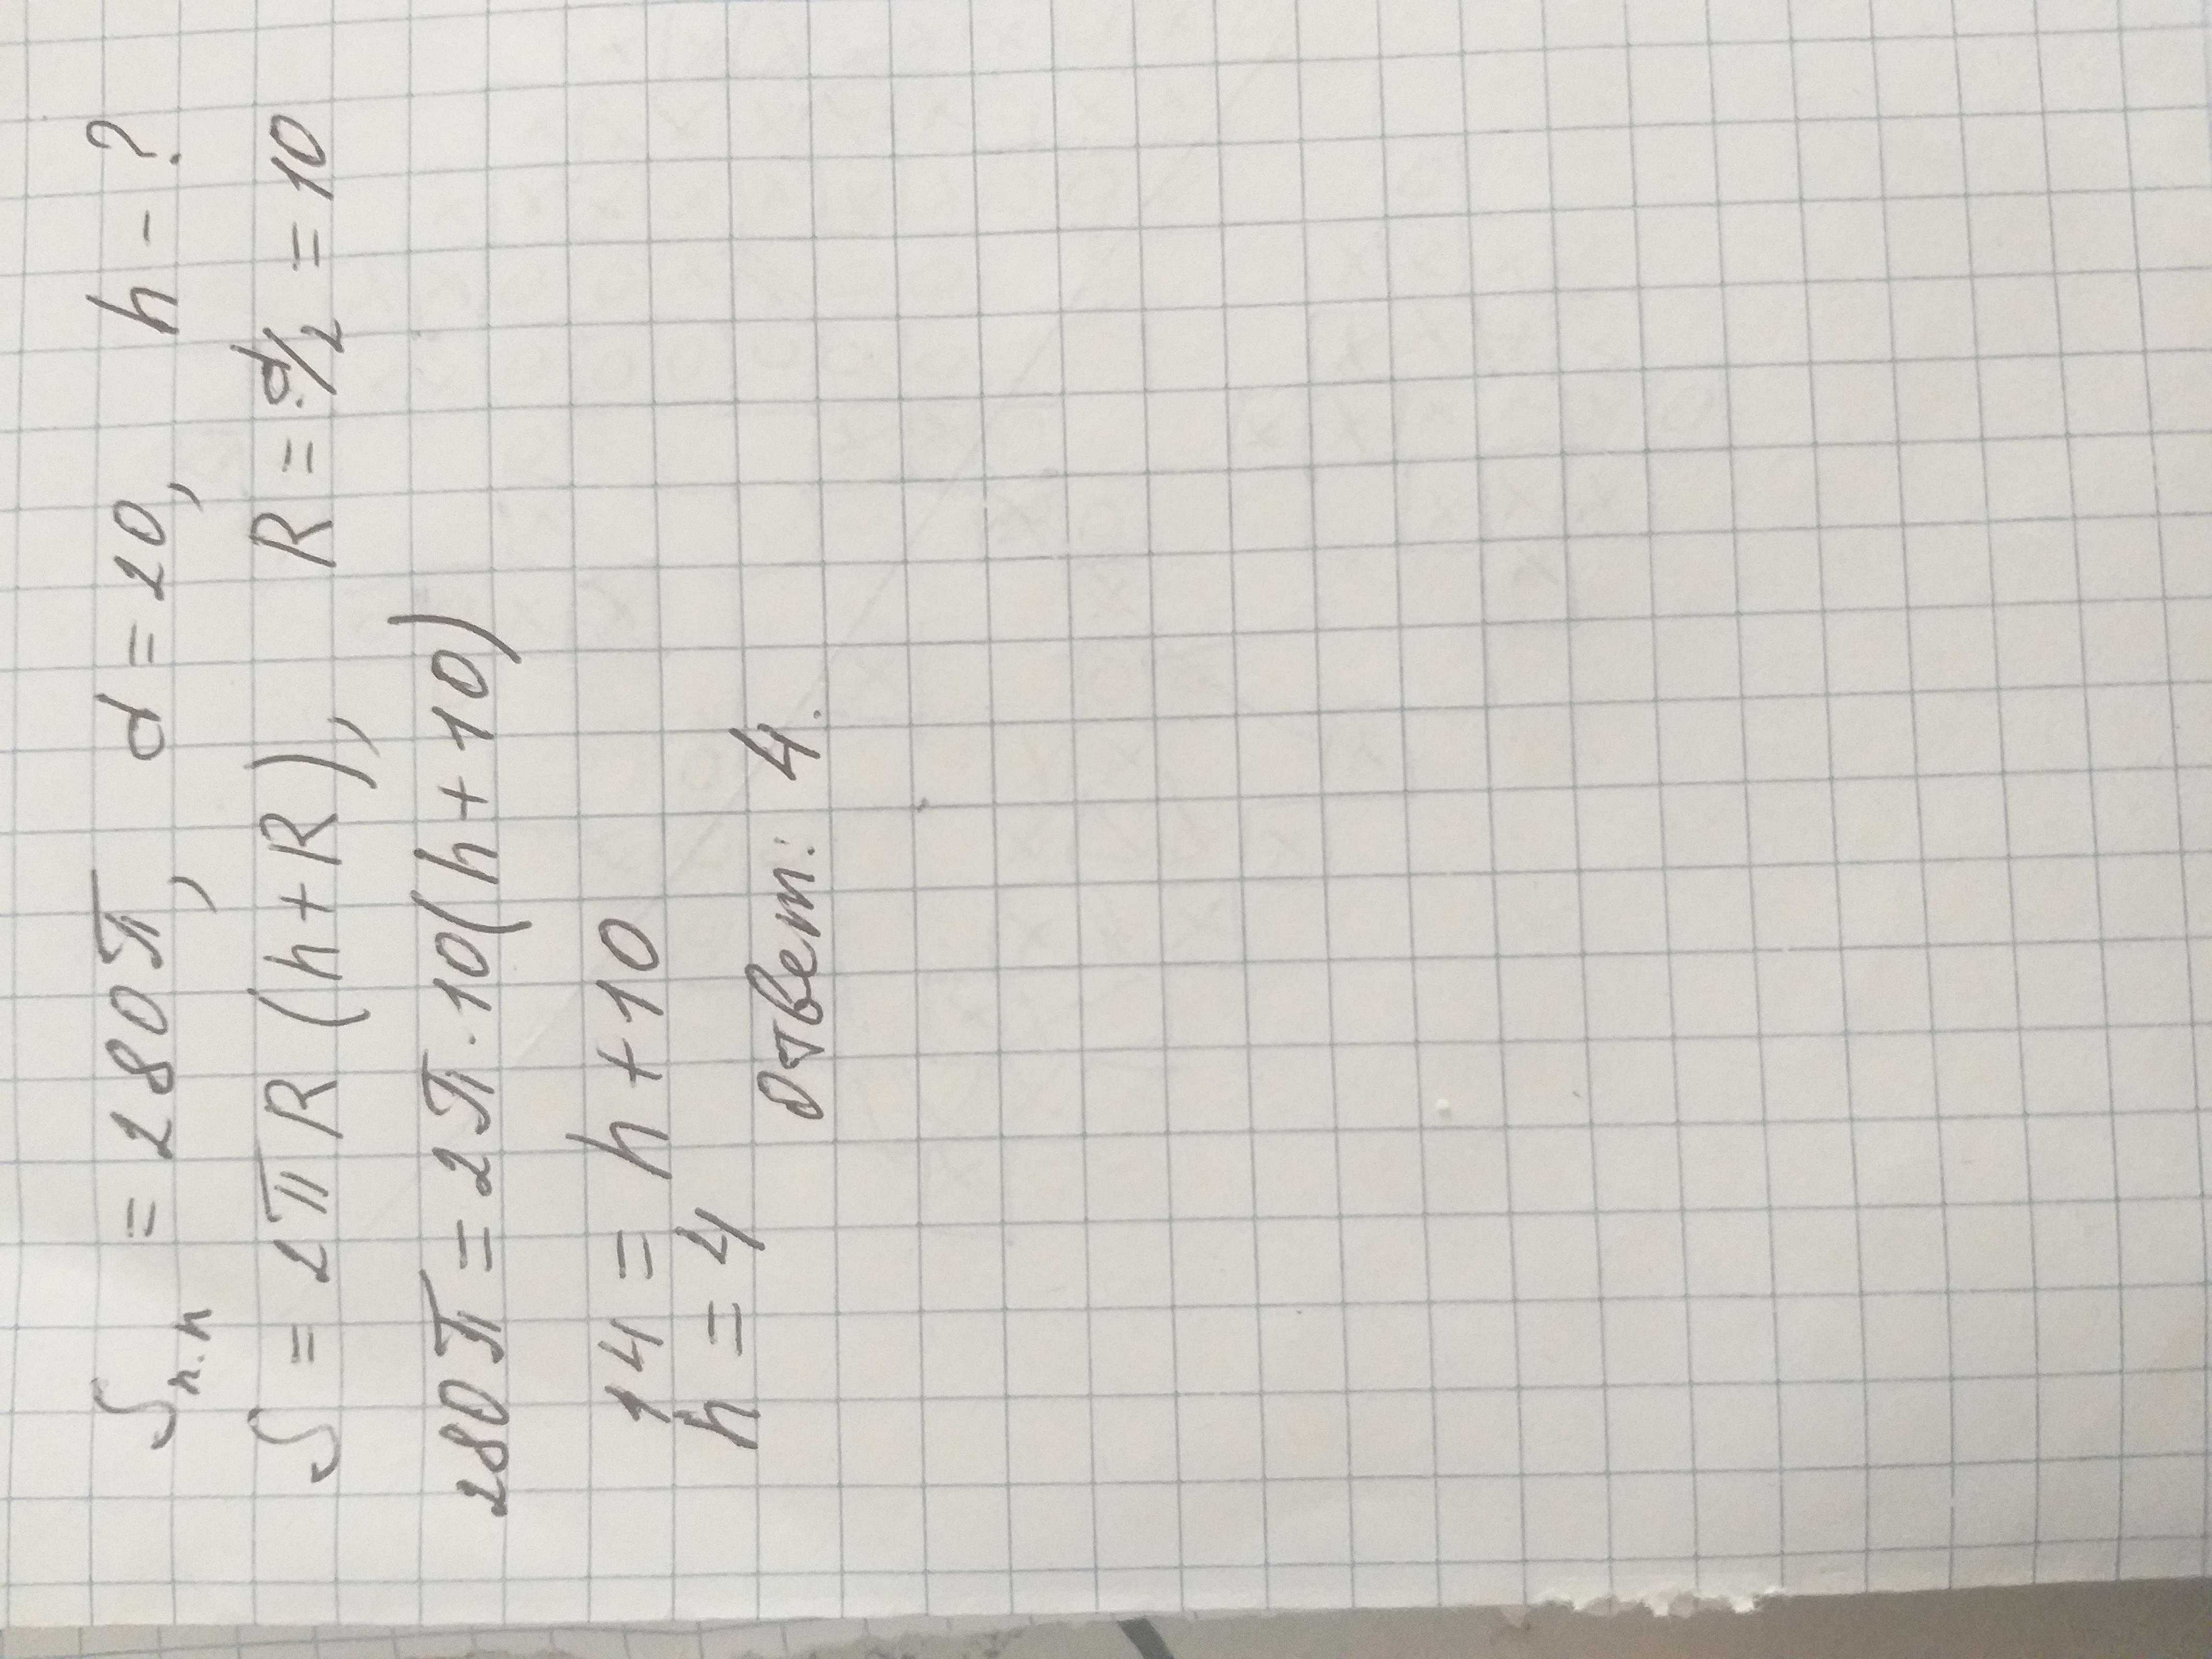 Sп.п = 280π, d = 20, h - ?
S = 2πR (h+R), R = d/2 = 10
280π = 2π·10(h+10)
14 = h+10
h = 4
Ответ: 4.